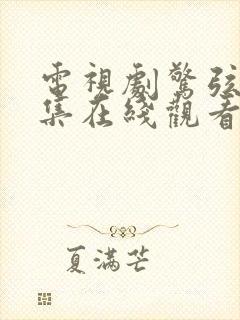 電視劇驚弦
集在綫觀看
夏滿芒